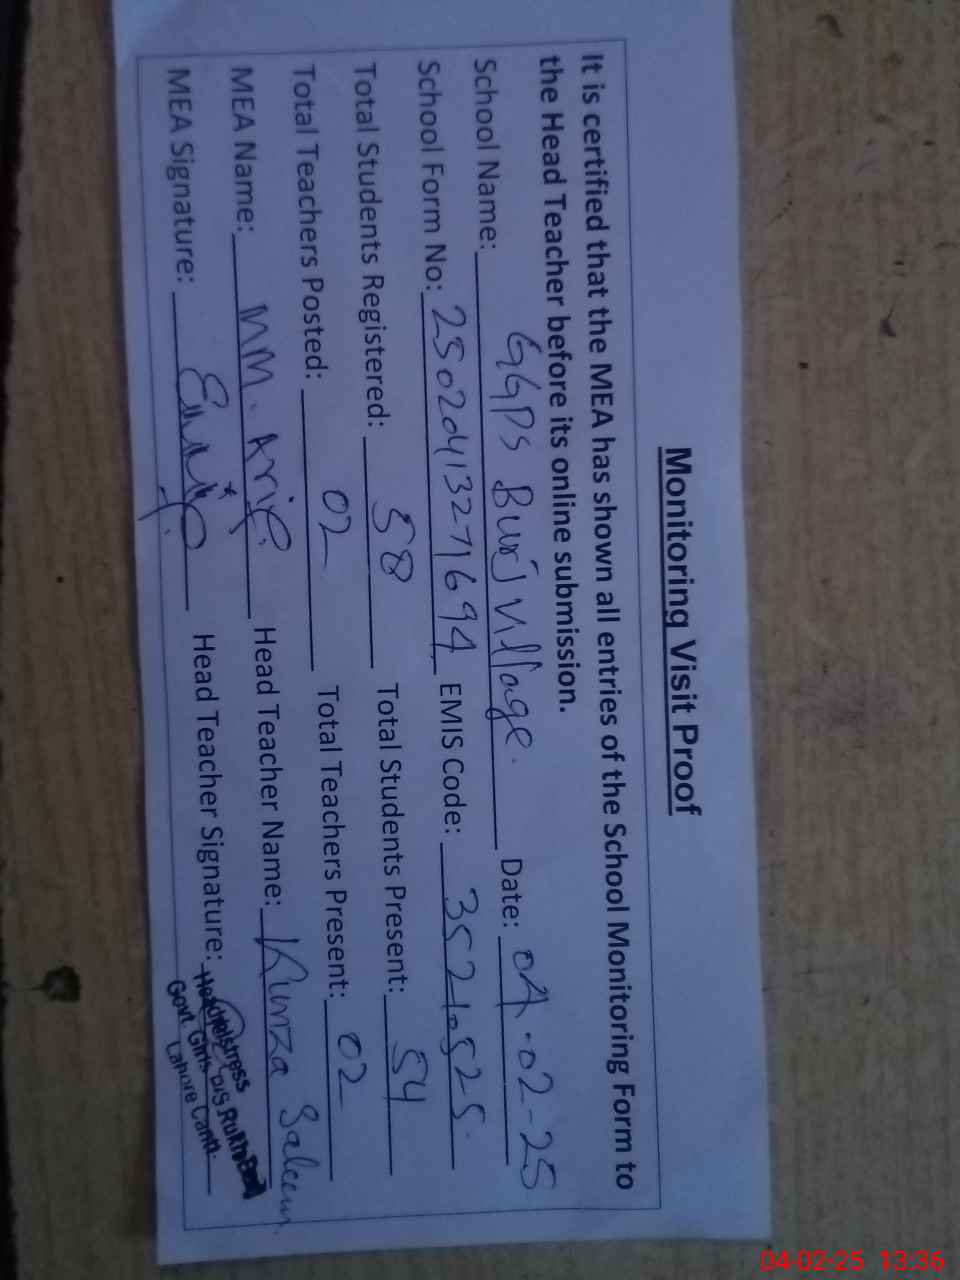 Monitoring Visit Proof
It is certified that the MEA has shown all entries of the School Monitoring Form to
the Head Teacher before its online submission.
School Name: GGPS Burj Village. Date: 04-02-25
School Form No: 250204132771694 EMIS Code: 35210525
Total Students Registered: 58 Total Students Present: 54
Total Teachers Posted: 02 Total Teachers Present: 02
MEA Name: MM. Arif. Head Teacher Name: Kinza Saleem
MEA Signature: Head Teacher Signature:
Headmistress
Govt. Girls P/S Rukh
Lahore Cantt.
04-02-25 13:36